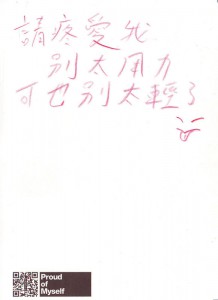 請疼愛我
別太用力
可也別太輕了
Proud
of
Myself